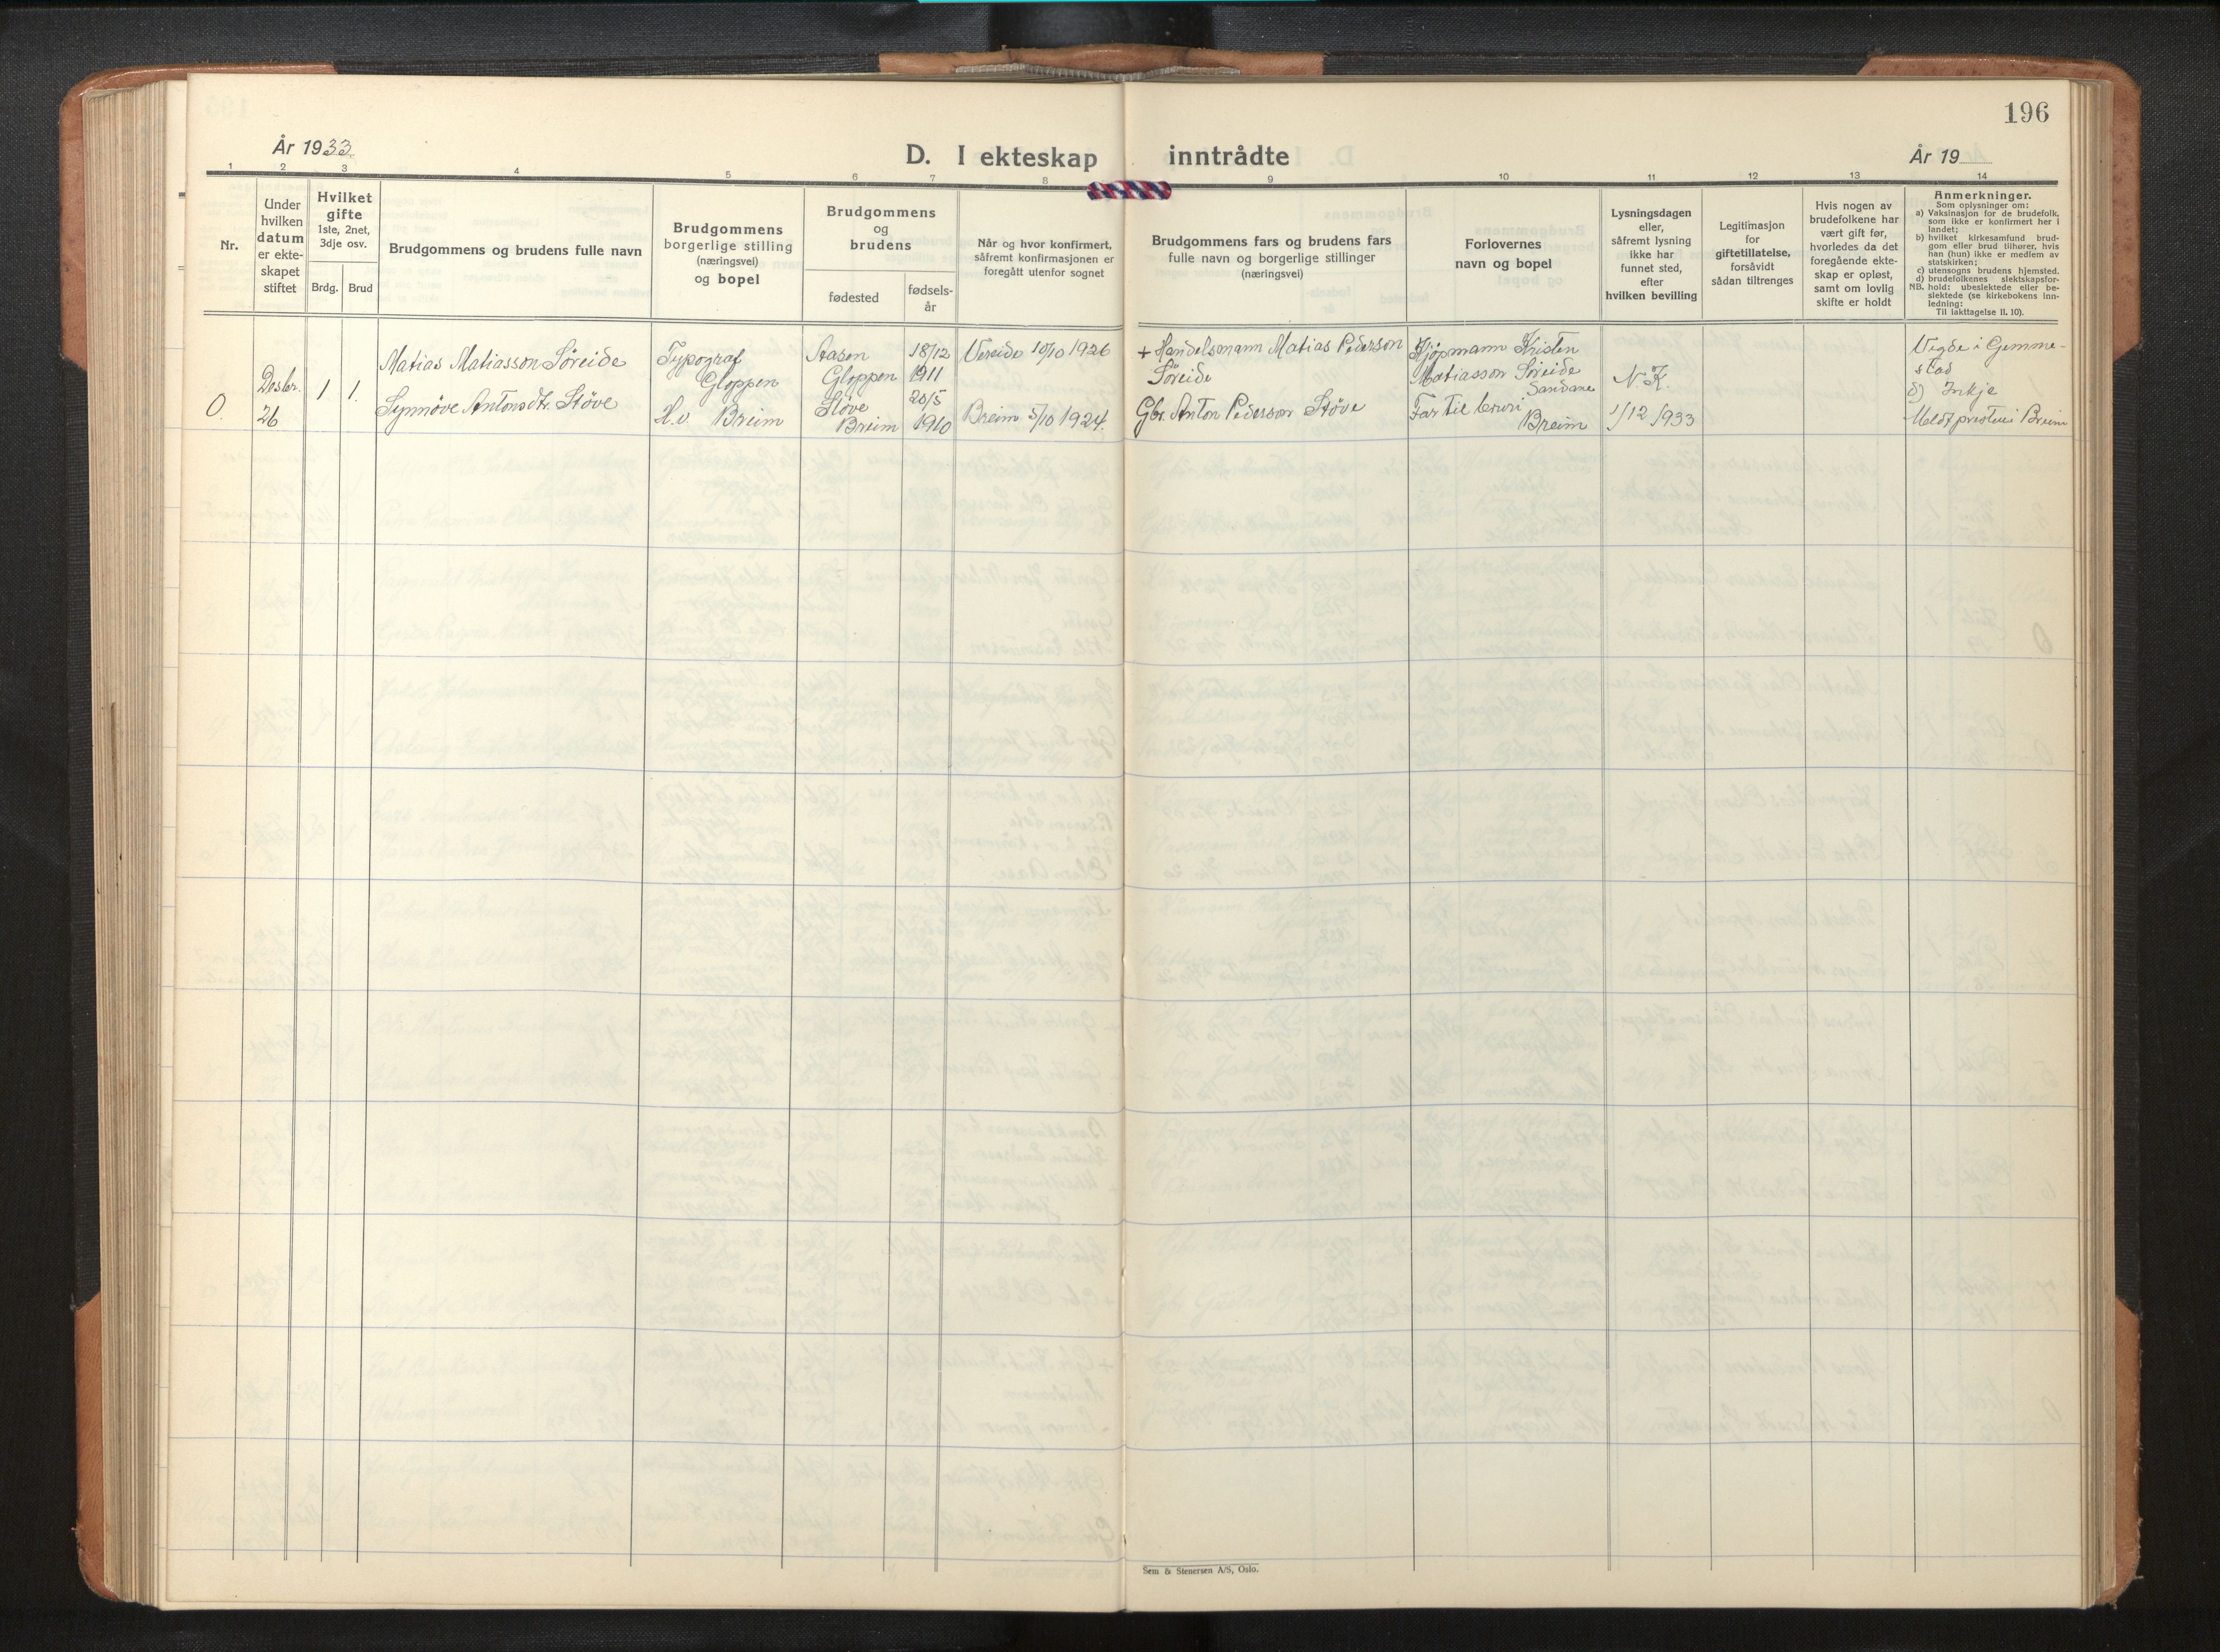 196
År 1933.
D. I ekteskap inntrådte
År 19
1 2 3 4 5 6 7 8 9 10 11 12 13 14
Nr.
Under
hvilken
datum
er ekte-
skapet
stiftet
Hvilket
gifte
1ste, 2net,
3dje osv.
Brdg. Brud
Brudgommens og brudens fulle navn
Brudgommens
borgerlige stilling
(næringsvei)
og bopel
Brudgommens
og
brudens
fødested
fødsels-
år
Når og hvor konfirmert,
såfremt konfirmasjonen er
foregått utenfor sognet
Brudgommens fars og brudens fars
fulle navn og borgerlige stillinger
(næringsvei)
Forlovernes
navn og bopel
Lysningsdagen
eller,
såfremt lysning
ikke har
funnet sted,
efter
hvilken bevilling
Legitimasjon
for
giftetillatelse,
forsåvidt
sådan tiltrenges
Hvis nogen av
brudefolkene har
vært gift før,
hvorledes da det
foregående ekte-
skap er opløst,
samt om lovlig
skifte er holdt
Anmerkninger.
Som oplysninger om:
a) Vaksinasjon for de brudefolk,
som ikke er konfirmert her i
landet;
b) hvilket kirkesamfund brud-
gom eller brud tilhører, hvis
han (hun) ikke er medlem av
statskirken;
c) utensogns brudens hjemsted.
d) brudefolkenes slektskapsfor-
NB. hold: ubeslektede eller be-
slektede (se kirkebokens inn-
ledning:
Til iakttagelse II. 10).
0.
Desbr.
26
1 1.
Matias Matiasson Söreide
Synnöve Antonsdtr. Stöve
Typograf
Gloppen
H.v. Breim
Aasen
Gloppen
Stöve
Breim
18/12
1911
20/5
1910
Vereide 10/10 1926
Breim 5/10 1924.
+ Handelsmann Matias Pederson
Söreide
Gbr. Anton Pedersson Stöve
Kjöpmann Kristen
Matiasson Söreide
Sandane
Far til bruri
Breim
N.K.
1/12 1933
Vigde i Gemme-
stad
d) Inkje
Meldt presten i Breim
Sem & Stenersen A/S, Oslo.